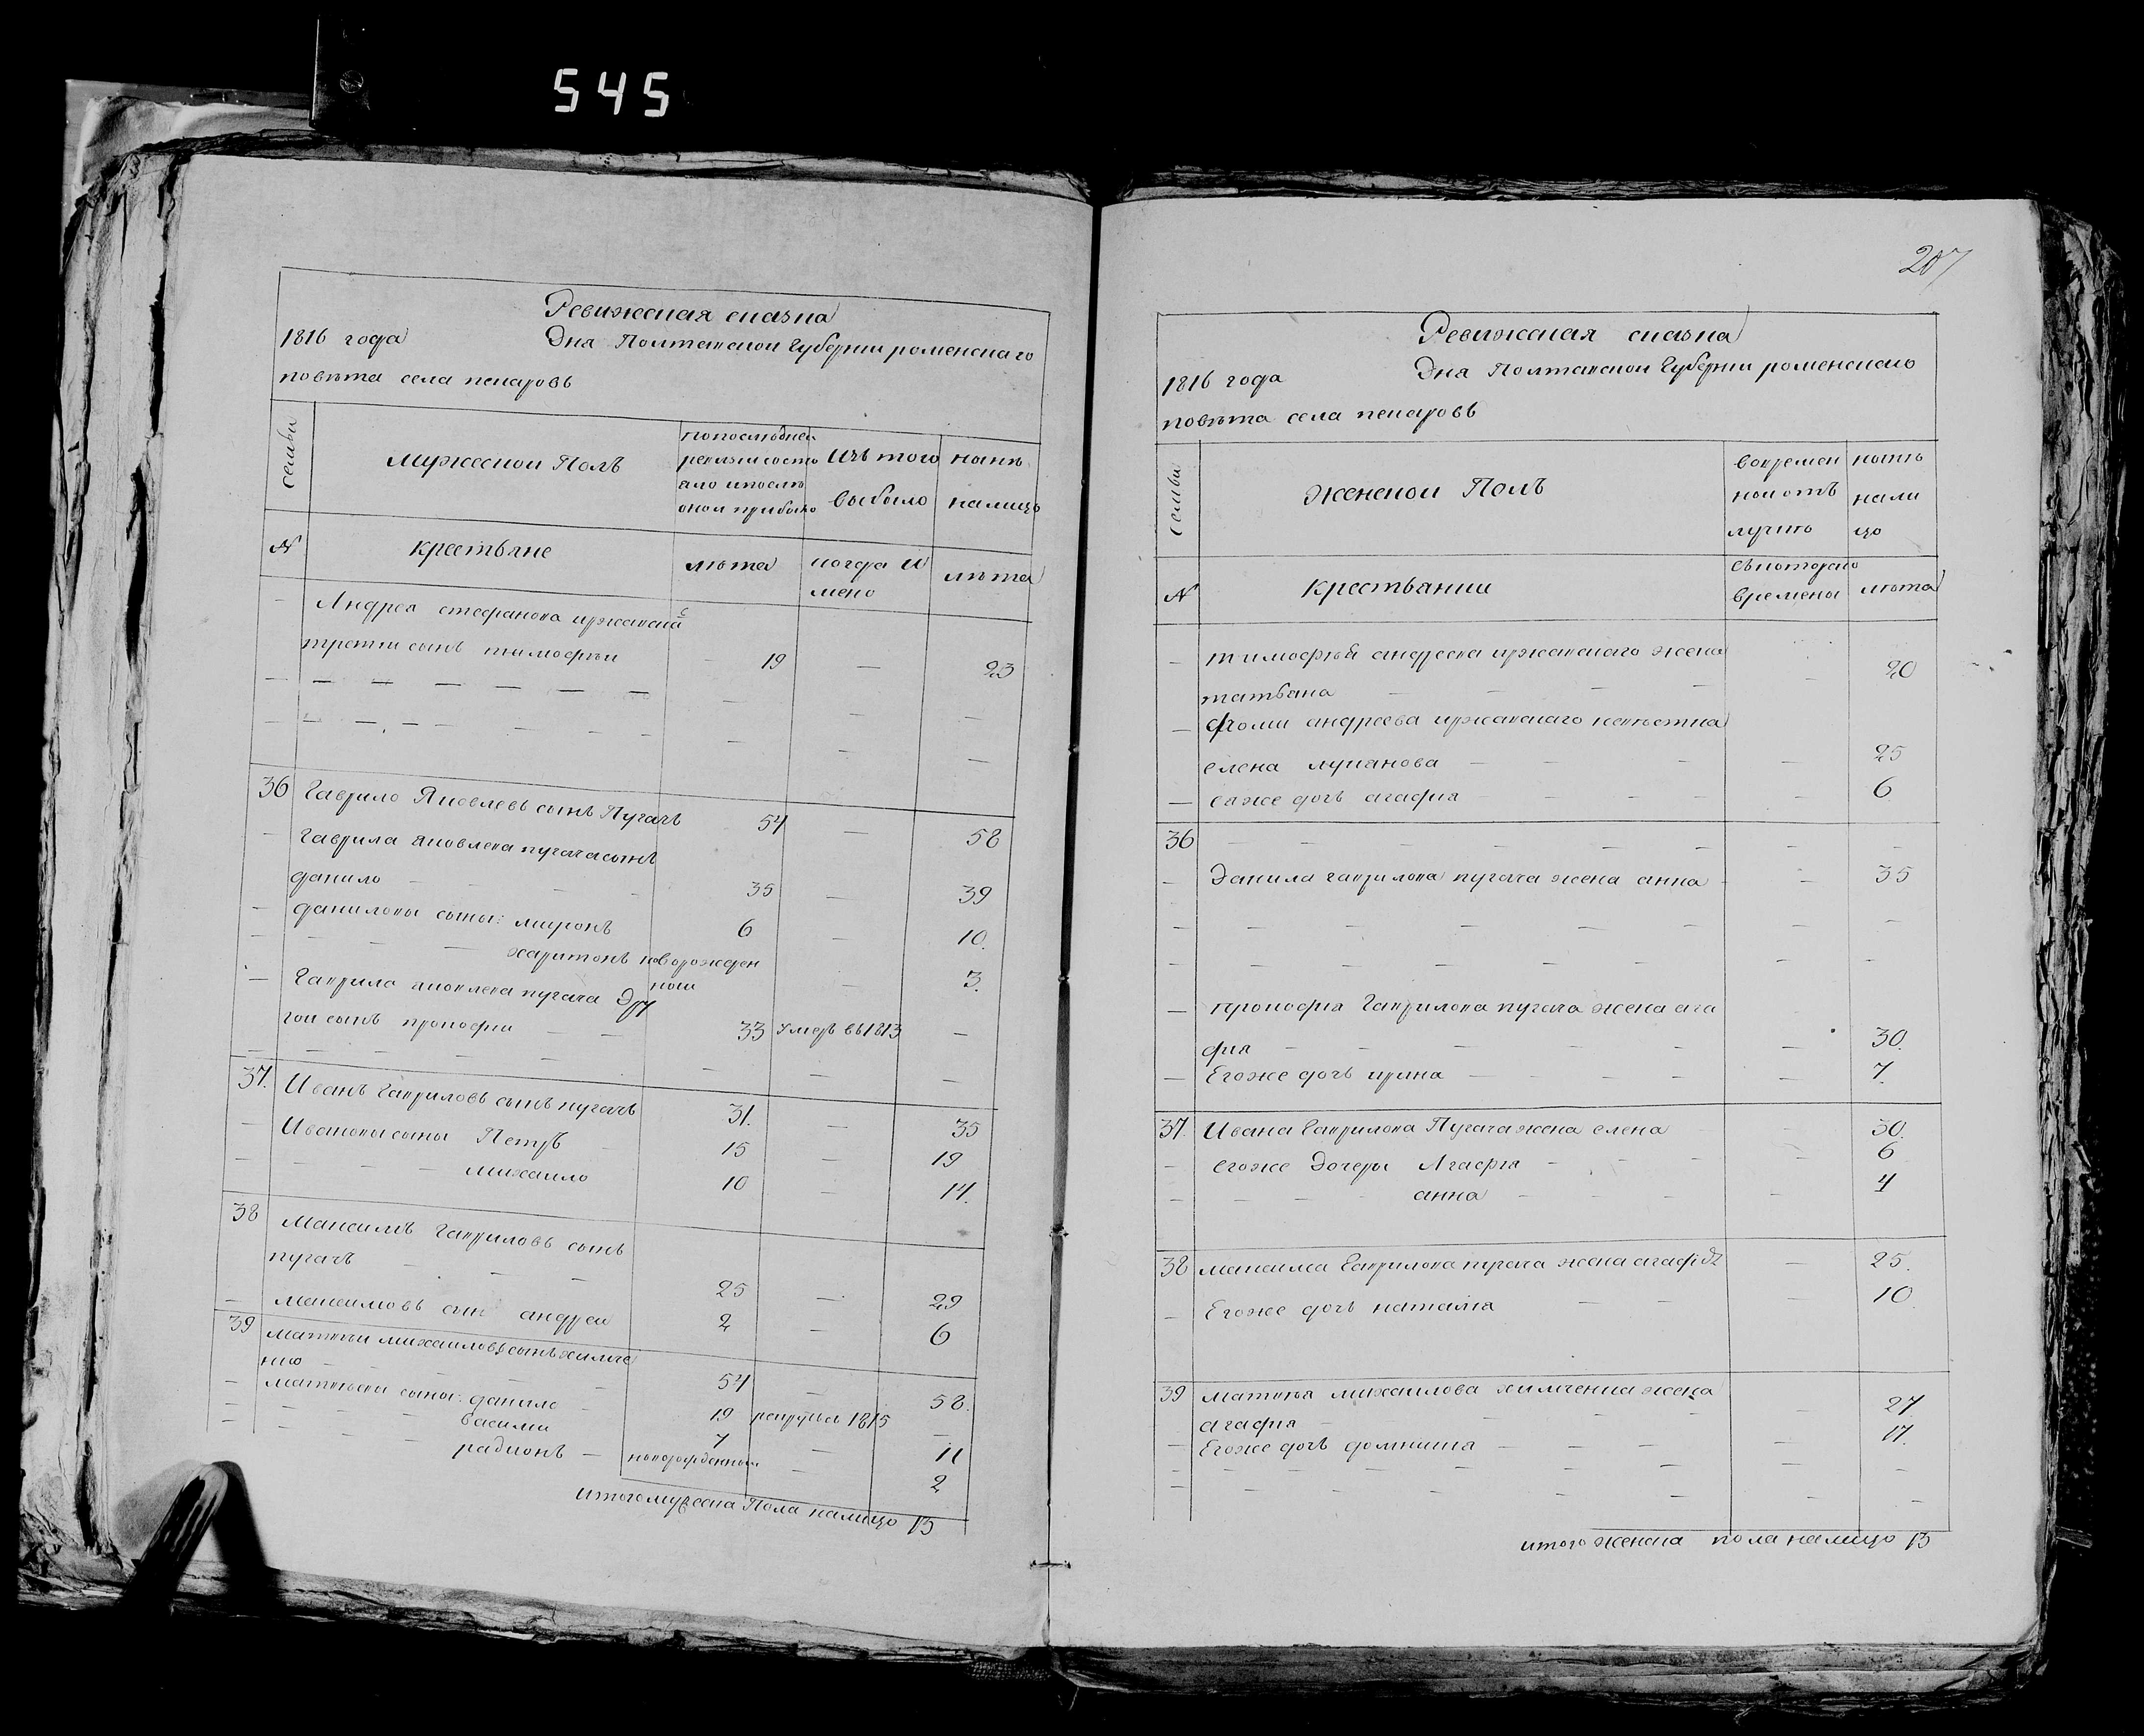 545
Ревижская сказка
1816 года Дня Полтавской Губернии роменскаго
повѣта села пекаровъ
семьи
мужескои Полъ
попослѣдней
ревизии состо
яло ипослѣ
оной прибыло
Изъ того
выбыло
нынѣ
налицо
№
крестьяне
лѣта
когда и
мено
лѣта
— Андрея стефанова иржавскаго
третии сынъ тимофѣи — 19 — 23
36 Гаврило Яковлевъ сынъ Пугачъ 54 — 58
— гаврила яковлева пугача сынъ
данило — 35 — 39
— даниловы сыны: миронъ 6 — 10.
— харитонъ новорожден
нои — 3.
— Гаврила яковлева пугача Дру
гои сынъ прокофии — 33 умеръ въ 1813 —
37. Иванъ Гавриловъ сынъ пугачъ 31. — 35
— Ивановы сыны Петръ 15 — 19
— михаило 10 — 14.
38 Максимъ Гавриловъ сынъ
пугачъ — 25 — 29
— максимовъ сынъ андреи 2 — 6
39 матвѣи михаиловъ сынъ химче
нко — 54 — 58.
— матвѣевы сыны: данило 19 рекрутъ въ 1815 —
— василии 7 — 11
— радионъ — новорожденнои — 2
итого мужеска Пола налицо 13
207
Ревижская сказка
1816 года Дня Полтавской Губернии роменскаго
повѣта села пекаровъ
семьи
женскои Полъ
вовремен
нои отъ
лучкѣ
нынѣ
нали
цо
№
крестьянки
съкотораго
времены
лѣта
— тимофѣя андреева иржавскаго жена
татьяна — 20
— фоми андреева иржавскаго невѣстка
елена луканова — 25
— еяже дочь агафия — 6
36
— Данила гаврилова пугача жена анна — 35
— прокофия Гаврилова пугача жена ага
фия — 30.
— Егоже дочь ирина — 7.
37. Ивана Гаврилова Пугача жена елена 30.
— егоже Дочеры Агафия — 6
— анна — 4
38 максима Гаврилова пугача жена агафия — 25.
— Егоже дочь наталия — 10
39 матвѣя михаилова химченка жена
агафия — 27
— Егоже дочь домникия — 17.
итого женска пола налицо 13